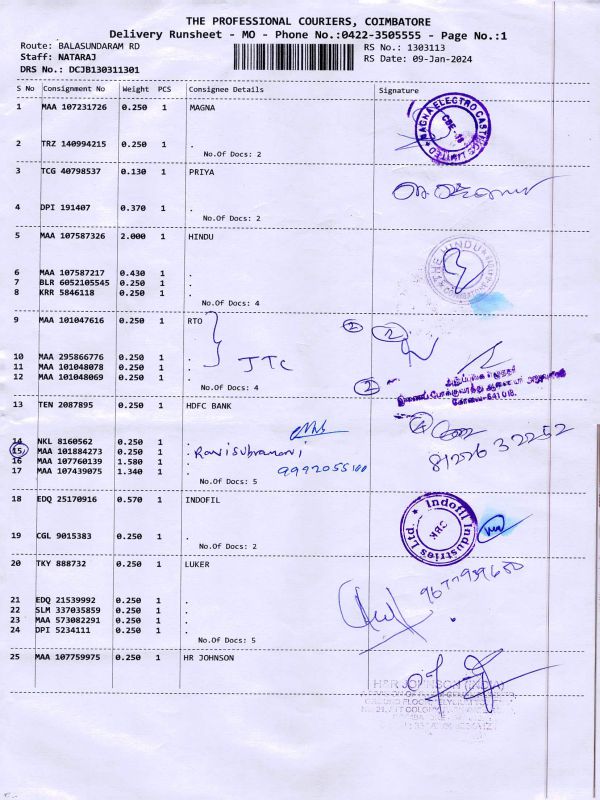 THE PROFESSIONAL COURIERS, COIMBATORE
Delivery Runsheet - MO - Phone No.:0422-3505555 - Page No.:1
Route: BALASUNDARAM RD
RS No.: 1303113
Staff: NATARAJ
RS Date: 09-Jan-2024
DRS No.: DCJB130311301
S No Consignment No Weight PCS Consignee Details Signature
1 MAA 107231726 0.250 1 MAGNA
MAGNA ELECTRO CASTINGS LIMITED
CBE-18
2 TRZ 140994215 0.250 1 .
No.Of Docs: 2
3 TCG 40798537 0.130 1 PRIYA
4 DPI 191407 0.370 1 .
No.Of Docs: 2
5 MAA 107587326 2.000 1 HINDU
THE HINDU
6 MAA 107587217 0.430 1 .
7 BLR 6052105545 0.250 1 .
8 KRR 5846118 0.250 1 .
No.Of Docs: 4
9 MAA 101047616 0.250 1 RTO
2 2
JTC
10 MAA 295866776 0.250 1 .
11 MAA 101048078 0.250 1 .
12 MAA 101048069 0.250 1 .
2
கோவை-641 018.
No.Of Docs: 4
13 TEN 2087895 0.250 1 HDFC BANK
14 NKL 8160562 0.250 1 .
15 MAA 101884273 0.250 1 . Ravisubramani
81226 32252
16 MAA 107760139 1.580 1 .
17 MAA 107439075 1.340 1 .
No.Of Docs: 5
18 EDQ 25170916 0.570 1 INDOFIL
Indofil Industries Ltd.
19 CGL 9015383 0.250 1 .
No.Of Docs: 2
20 TKY 888732 0.250 1 LUKER
21 EDQ 21539992 0.250 1 .
22 SLM 337035859 0.250 1 .
23 MAA 573082291 0.250 1 .
24 DPI 5234111 0.250 1 .
No.Of Docs: 5
25 MAA 107759975 0.250 1 HR JOHNSON
H&R JOHNSON (INDIA)